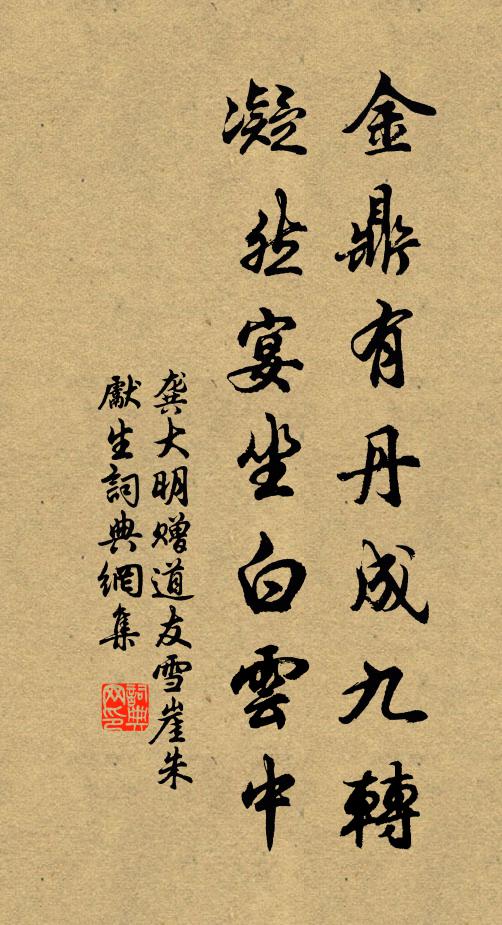 金鼎有丹成九轉
凝然宴坐白雲中
龔大明贈道友雪崖朱
獻生詞典網集
詞典
网印